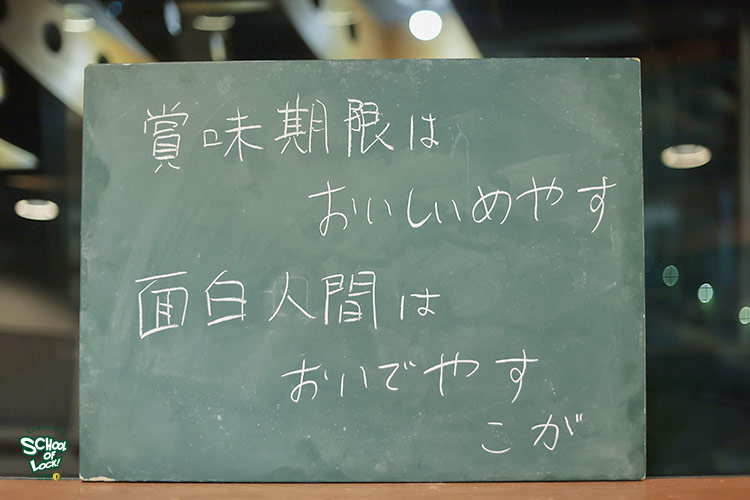 賞味期限は
おいしいめやす
面白人間は
おいでやす
こが
SCHOOL
OF
LOCK!